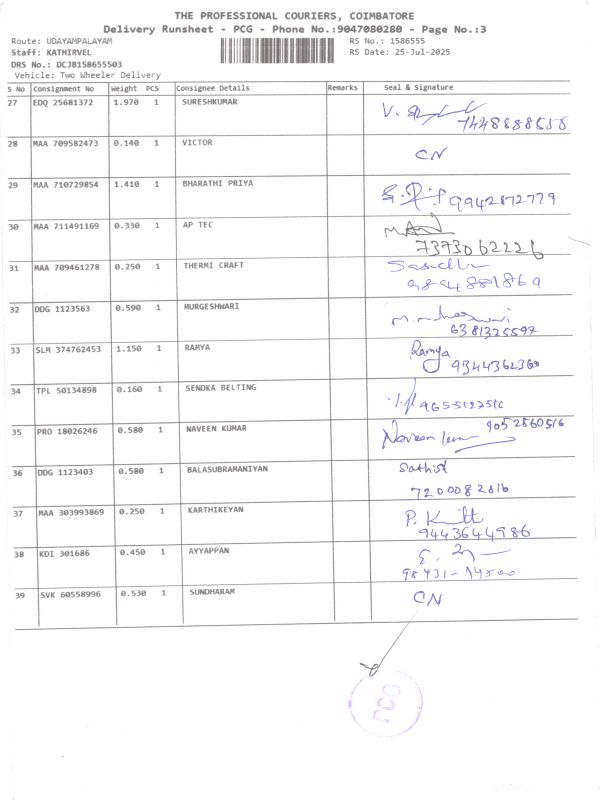 THE PROFESSIONAL COURIERS, COIMBATORE
Delivery Runsheet - PCG - Phone No.:9047080280 - Page No.:3
Route: UDAYAMPALAYAM RS No.: 1586555
Staff: KATHIRVEL RS Date: 25-Jul-2025
DRS No.: DCJB158655503
Vehicle: Two Wheeler Delivery
S No Consignment No Weight PCS Consignee Details Remarks Seal & Signature
27 EDQ 25681372 1.970 1 SURESHKUMAR V.
28 MAA 709582473 0.140 1 VICTOR CN
29 MAA 710729854 1.410 1 BHARATHI PRIYA 9942872779
30 MAA 711491169 0.330 1 AP TEC
7373062226
31 MAA 709461278 0.250 1 THERMI CRAFT
9894881869
32 DDG 1123563 0.590 1 MURGESHWARI
6381325592
33 SLM 374762453 1.150 1 RAMYA Ramya
9344362360
34 TPL 50134898 0.160 1 SENDKA BELTING 9655122516
35 PRO 18026246 0.580 1 NAVEEN KUMAR 9052860516
Naveen
36 DDG 1123403 0.580 1 BALASUBRAMANIYAN Sathish
7200082816
37 MAA 303993869 0.250 1 KARTHIKEYAN P.
9443644986
38 KDI 301686 0.450 1 AYYAPPAN
39 SVK 60558996 0.530 1 SUNDHARAM CN
PCG